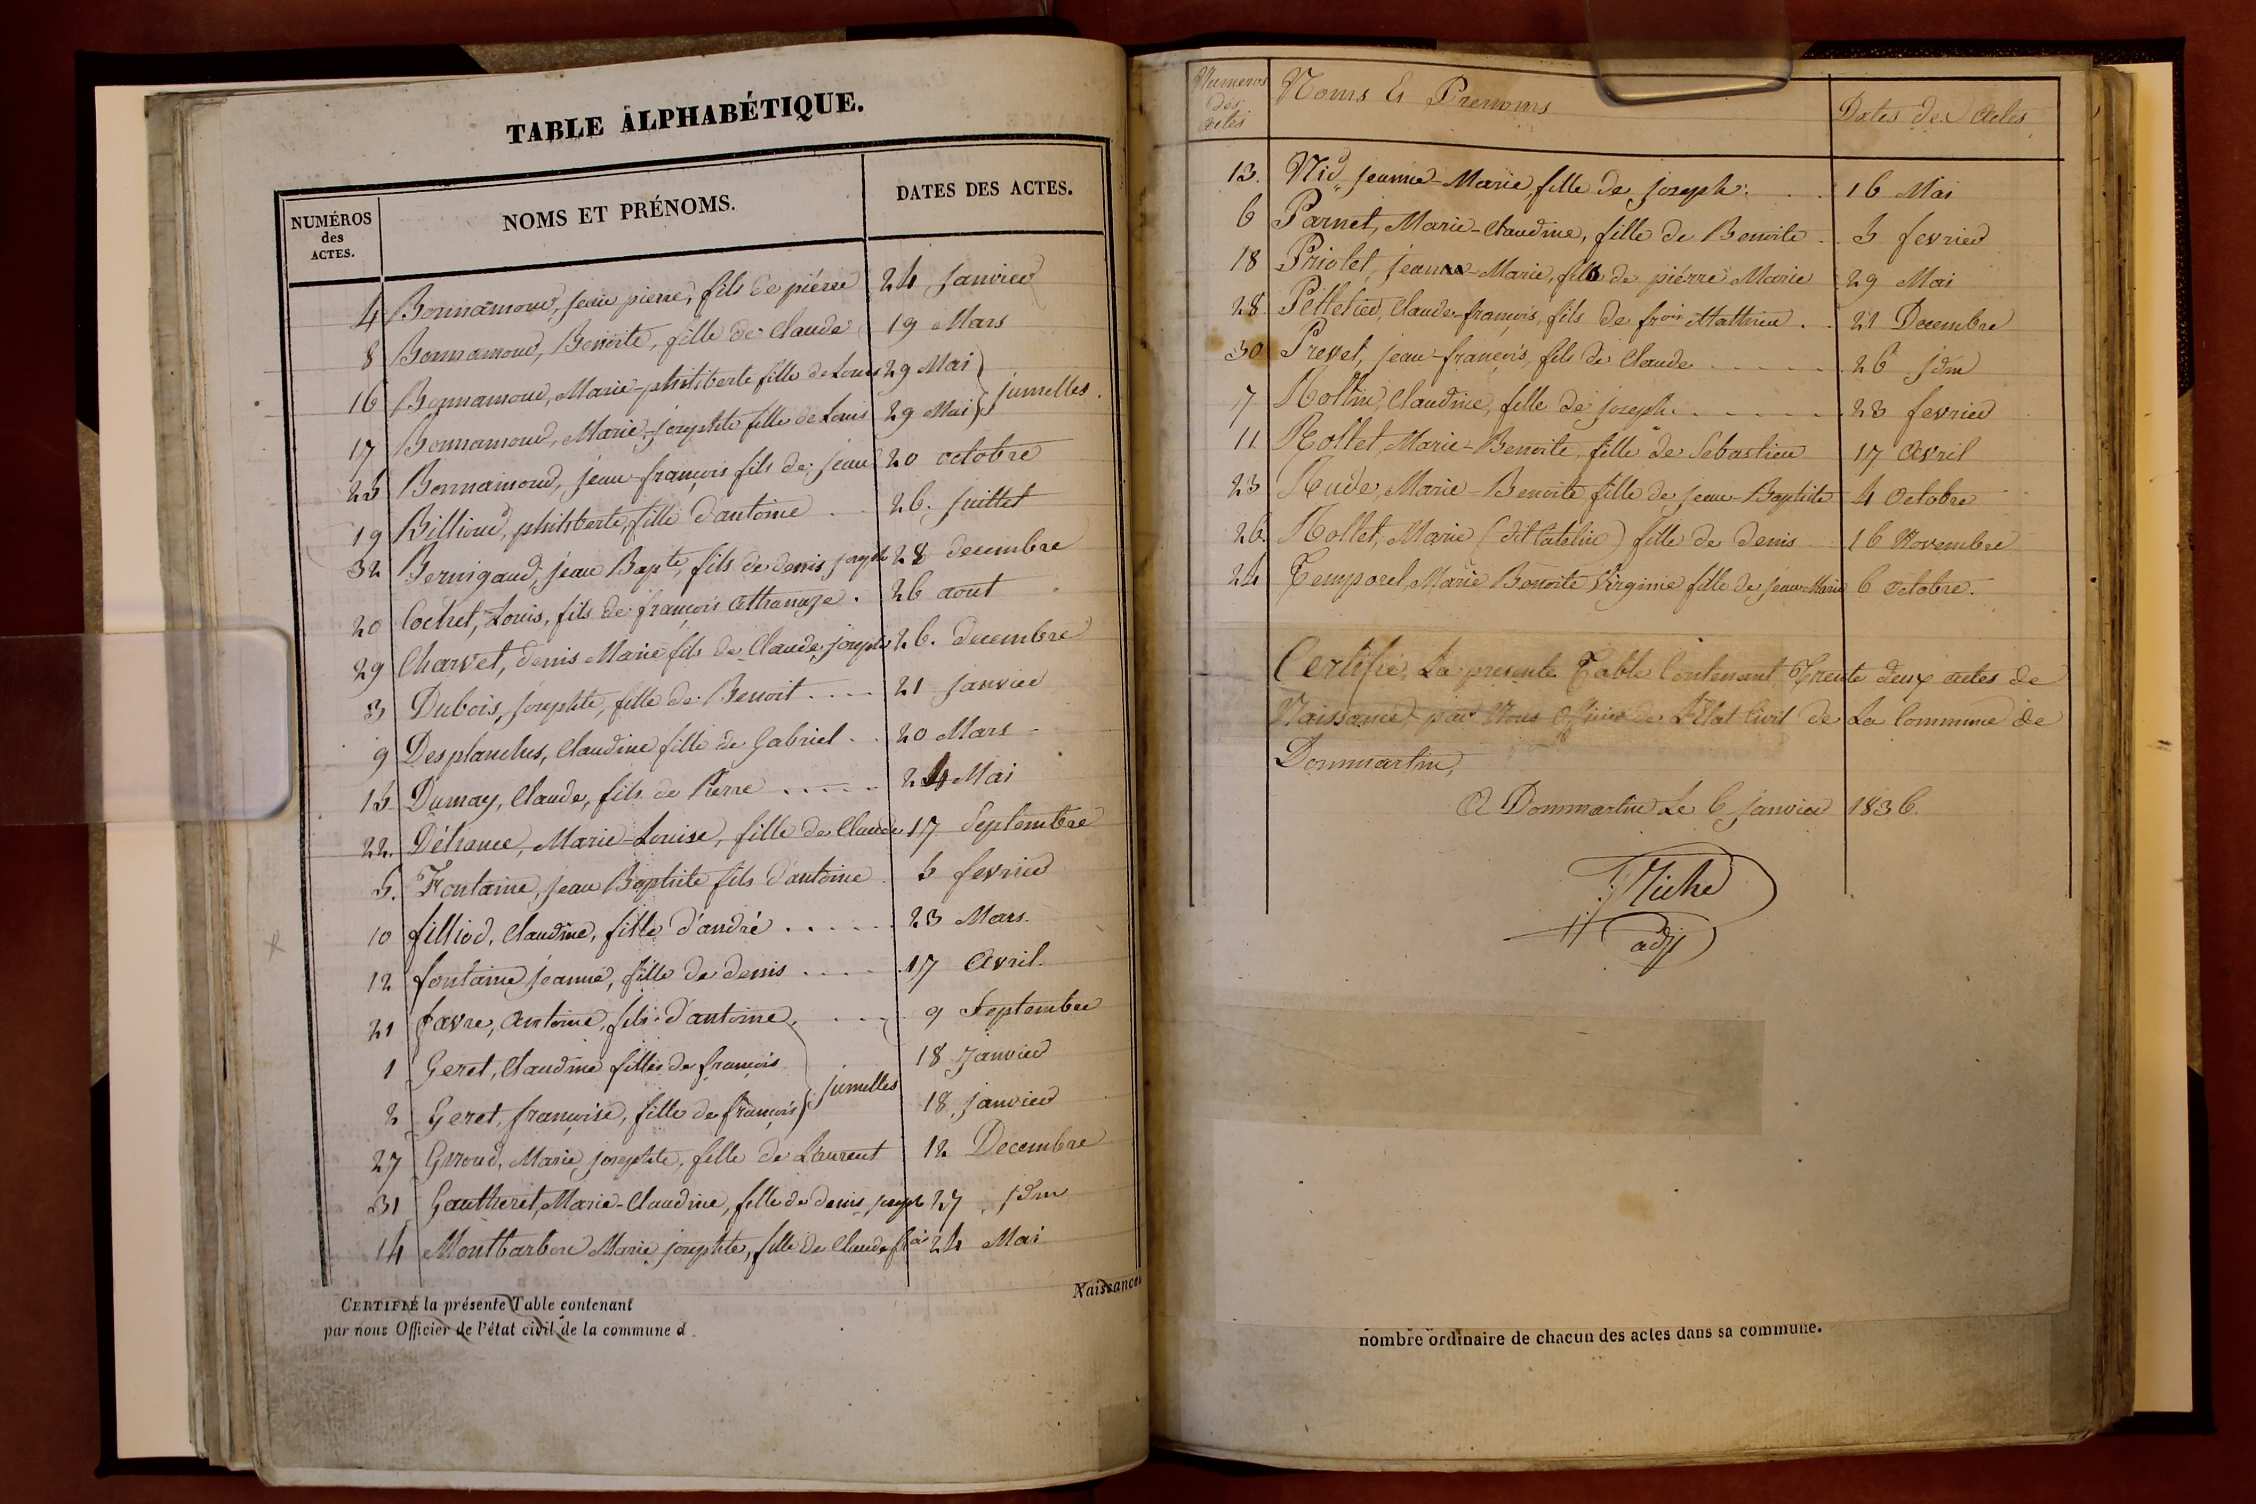 TABLE ALPHABÉTIQUE.
NUMÉROS des ACTES. NOMS ET PRÉNOMS. DATES DES ACTES.
4 Bonnamour, jean pierre, fils de piérre 24 janvier
8 Bonnamour, Benoite, fille de Claude 19 Mars
16 Bonnamour, Marie-philiberte fille de Louis 29 Mai
jumelles.
17 Bonnamour, Marie-josephte fille de Louis 29 Mai
25 Bonnamour, jean-françois fils de jean 20 octobre
19 Billioud, philiberte, fille d'antoine 26. juillet
32 Bernigaud, jean Bapte, fils de denis joseph 28 decembre
20 Cochet, Louis, fils de françois Athanaze. 26 aout
29 Charvet, denis Marie fils de Claude joseph 26. decembre
3 Dubois, josephte, fille de Benoit .... 21 janvier
9 Desplanches, Claudine fille de Gabriel .. 20 Mars
15 Dumay, Claude, fils de Pierre ..... 24 Mai
22. Détrance, Marie-Louise, fille de Claude 17 Septembre
5. Fontaine, jean Baptiste fils d'antoine 5 fevrier
10 filliod, Claudine, fille d'andré ..... 23 Mars.
12 fontaine jeanne, fille de denis .... 17 Avril.
21 favre, Antoine, fils d'antoine. .... 9 Septembre
1 Geret, Claudine fille de françois 18 janvier
jumelles
2 Geret, françoise, fille de françois 18 janvier
27 Giroud, Marie josephte, fille de Laurent 12 Decembre
31 Gautheret, Marie-Claudine, fille de denis joseph 27 idm
14 Montbarbon Marie josephte, fille de Claude fois 24 Mai
Naissances
CERTIFIÉ la présente Table contenant
par nous Officier de l'état civil de la commune d
Numeros des actes Noms & Prenoms Dates des Actes
13. Nid, jeanne-Marie, fille de joseph. .. 16 Mai
6 Parnet, Marie-Claudine, fille de Benoite .. 5 fevrier
18 Priolet, jeanne-Marie, fille de piérre Marie 29 Mai
28. Pelletier, Claude-françois, fils de frois Mathieu . 21 Decembre
30 Prevet, jean-françois, fils de Claude ..... 26 idm
7 Rollin, Claudine, fille de joseph. ...... 28 fevrier
11 Rollet, Marie-Benoite, fille de Sebastien 17 Avril
23 Rude, Marie-Benoite fille de jean-Baptiste 4 Octobre
26. Rollet, Marie (dit Catelin) fille de denis 16 Novembre
24 Temporel, Marie Benoite Virginie fille de jean-Marie 6 Octobre.
Certifié, La presente Table Contenant Trente deux actes de
Naissance par Nous officier de L'Etat Civil de La Commune de
Dommartin,
A Dommartin Le 6 janvier 1836.
adj
nombre ordinaire de chacun des actes dans sa commune.